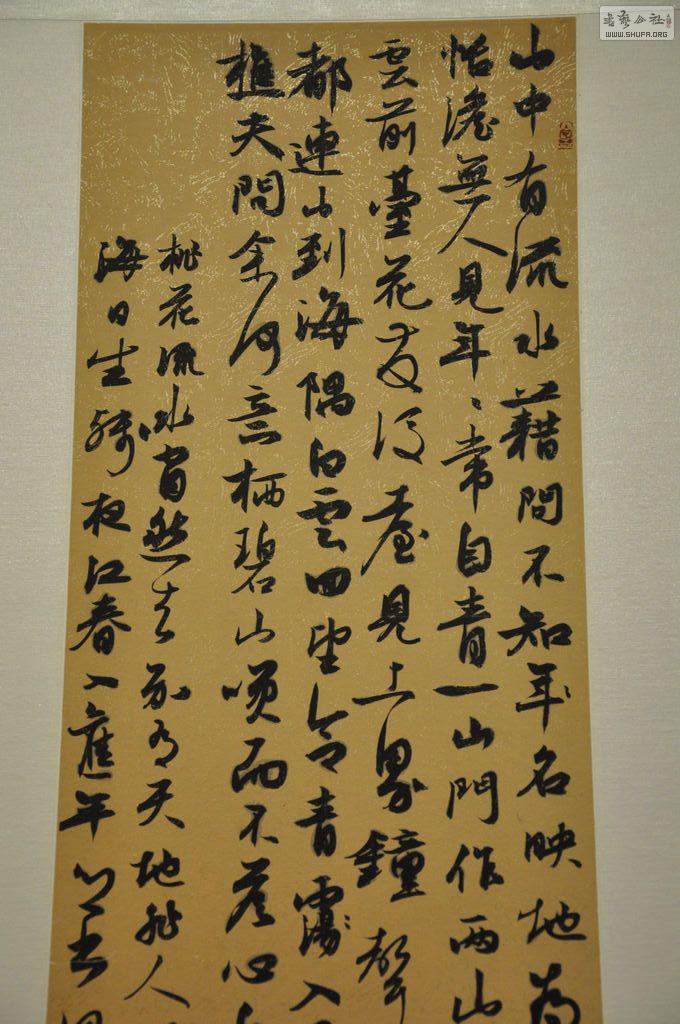 書藝公社
WWW.SHUFA.ORG
山中有流水藉問不知年名映地為
恬澹無人見年〻常自青一山門作兩山
雲前臺花發後臺見上界鐘聲
都連山到海隅白雲回望合青靄入
樵夫問余何意栖碧山咲而不答心
桃花流水窅然去別有天地非人
海日生殘夜江春入舊年鄉書